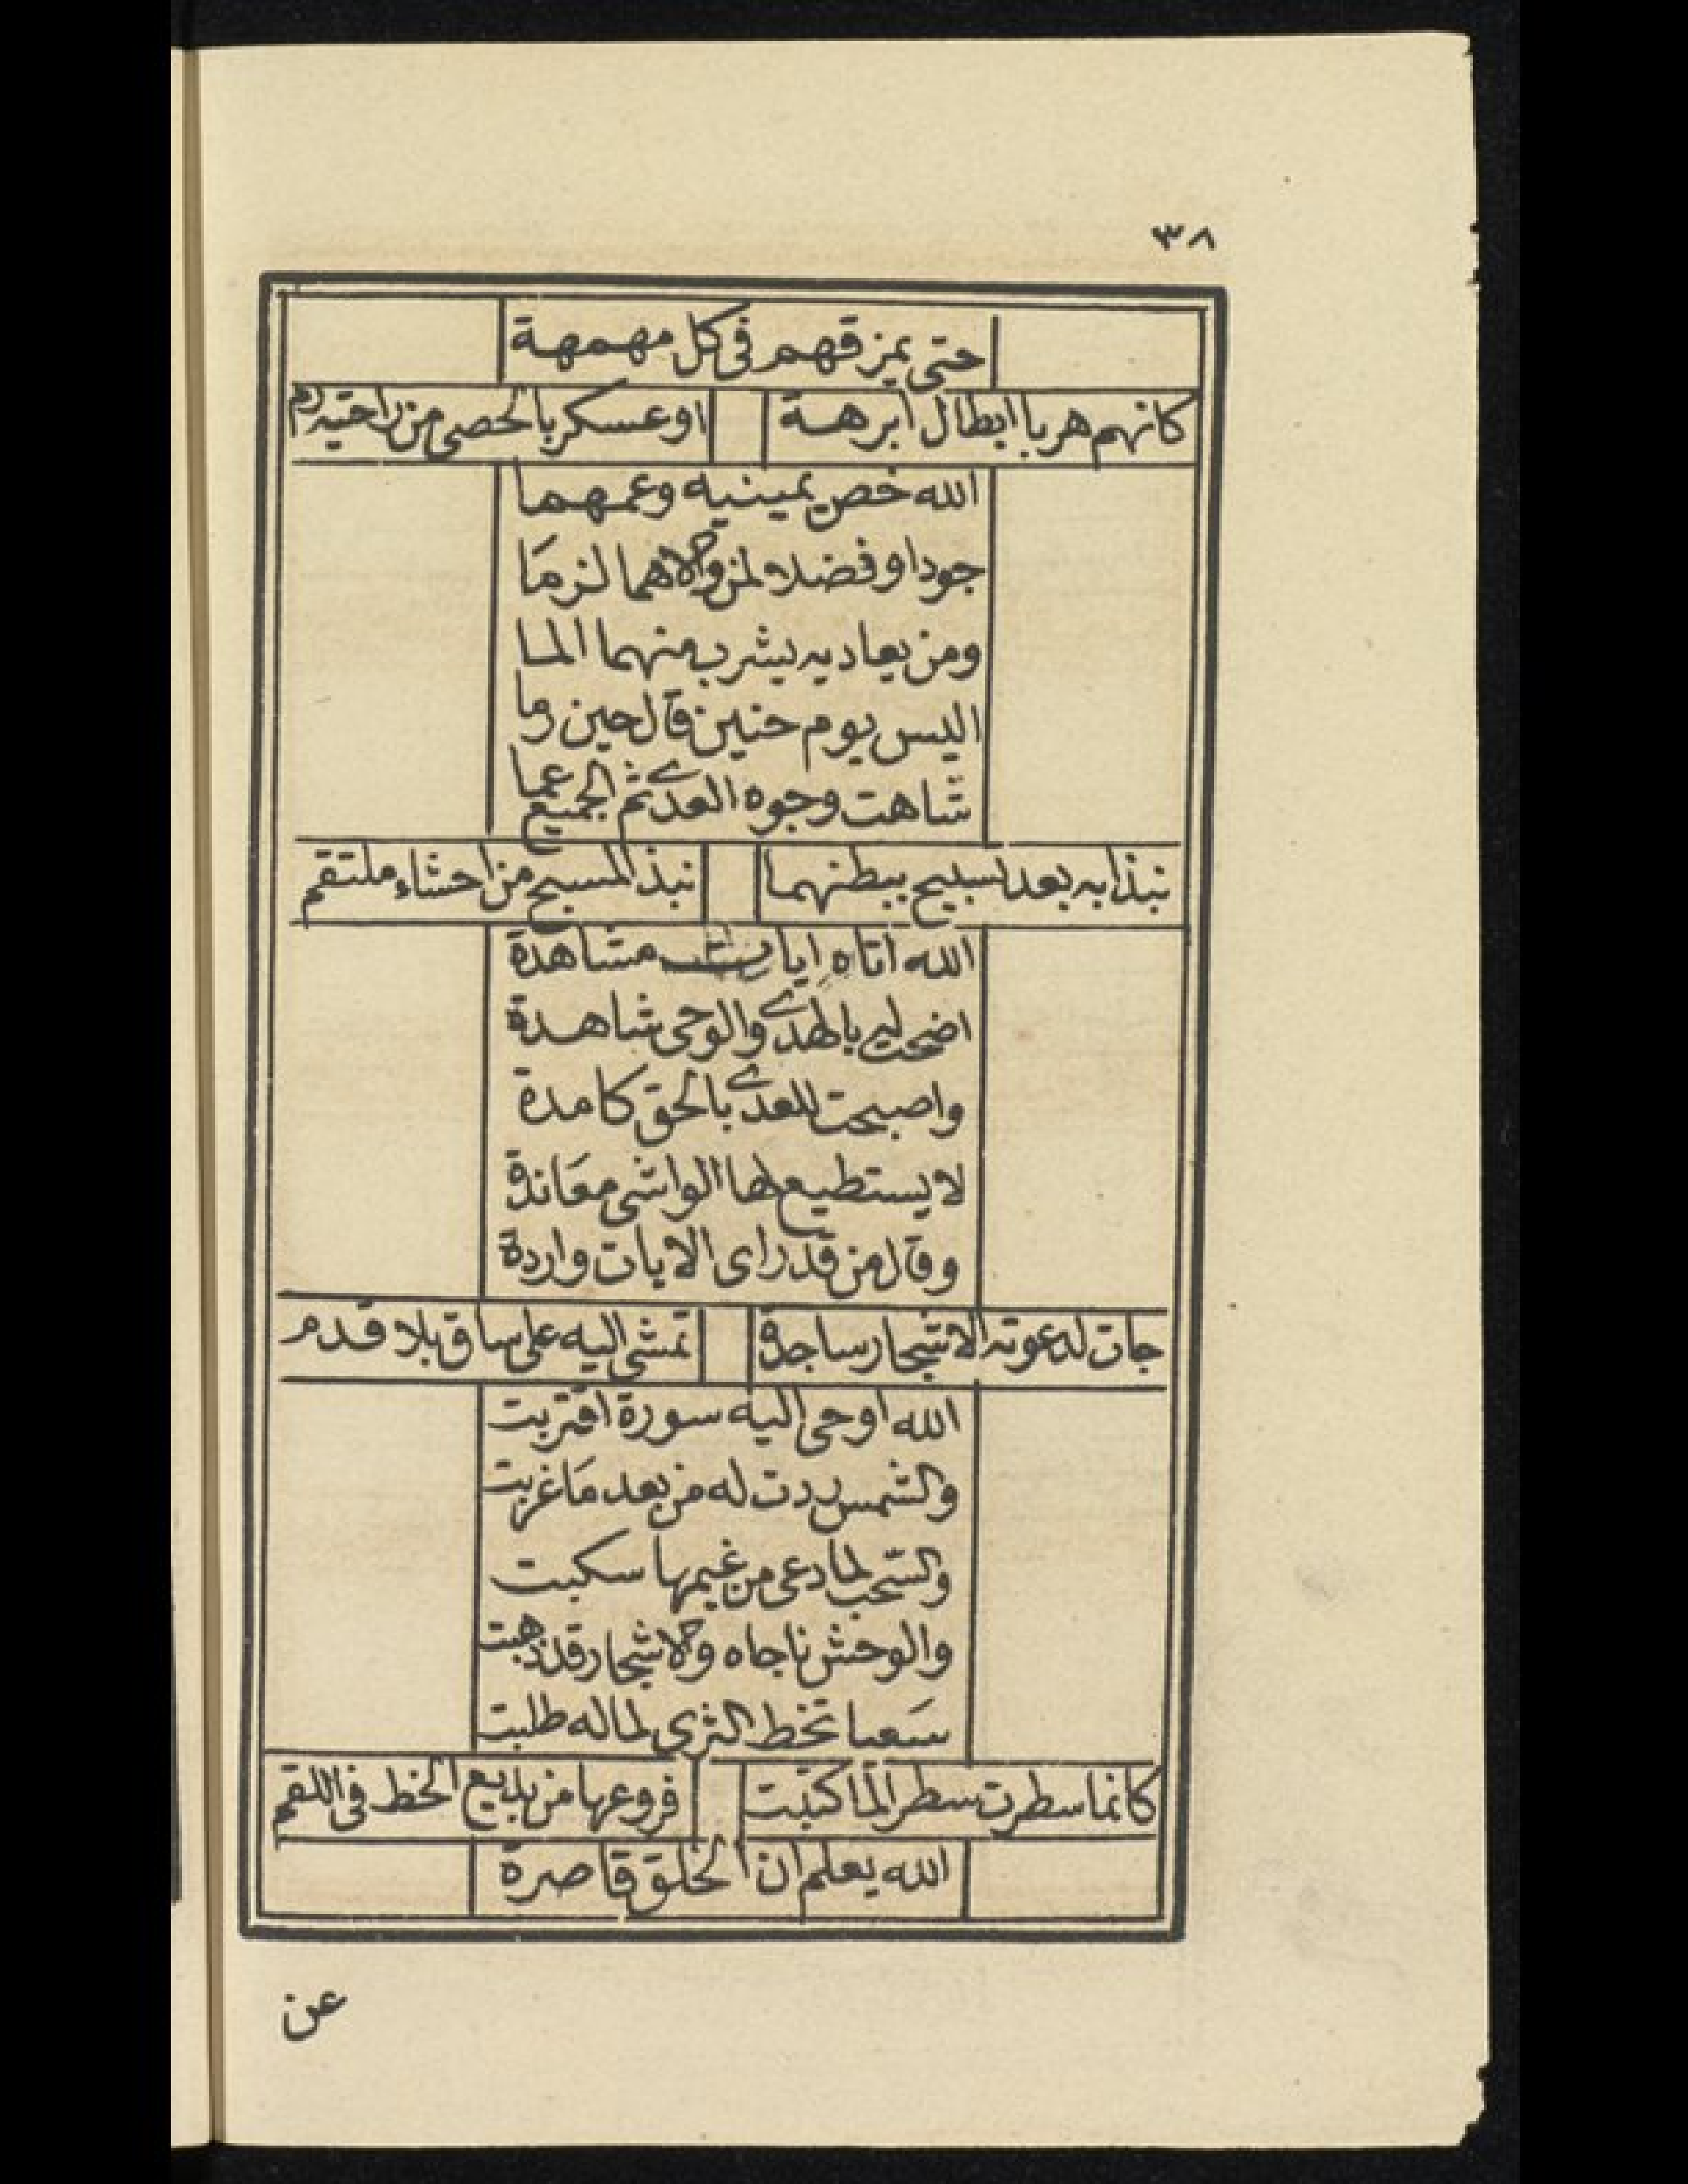 ٣٨
حتى يمزقهم فى كل مهمهة
كانهم هربا ابطال ابرهة اوعسكر بالحصى من راحتيه رم
الله خص يمينيه وعمهما
جودا وفضلا لمن والاهما لزمَا
ومن يعاديه يشرب منهما الما
اليس يوم حنين قال حين رما
شاهت وجوه العدى ثم الجميع عما
نبذا به بعد تسبيح ببطنهما نبذ المسبح من احشاء ملتقم
الله اتاه ايات مشاهدة
اضحت ليه بالهدى والوحى شاهدة
واصبحت للعدى بالحق كامدة
لا يستطيع لها الواشى معَاندة
وقال من قد راى الايات واردة
جات لدعوته الاشجار ساجدة تمشى اليه على ساق بلا قدم
الله اوحى اليه سورة اقتربت
والشمس ردت له من بعد مَا غربت
والسحب لما دعى من غيمها سكبت
والوحش ناجاه والاشجار قد ذهبت
سَعيا تخط الثرى لما له طلبت
كانما سطرت سطرا لما كتبت فروعها من بديع الخط فى اللقم
الله يعلم ان الخلق قاصرة
عن